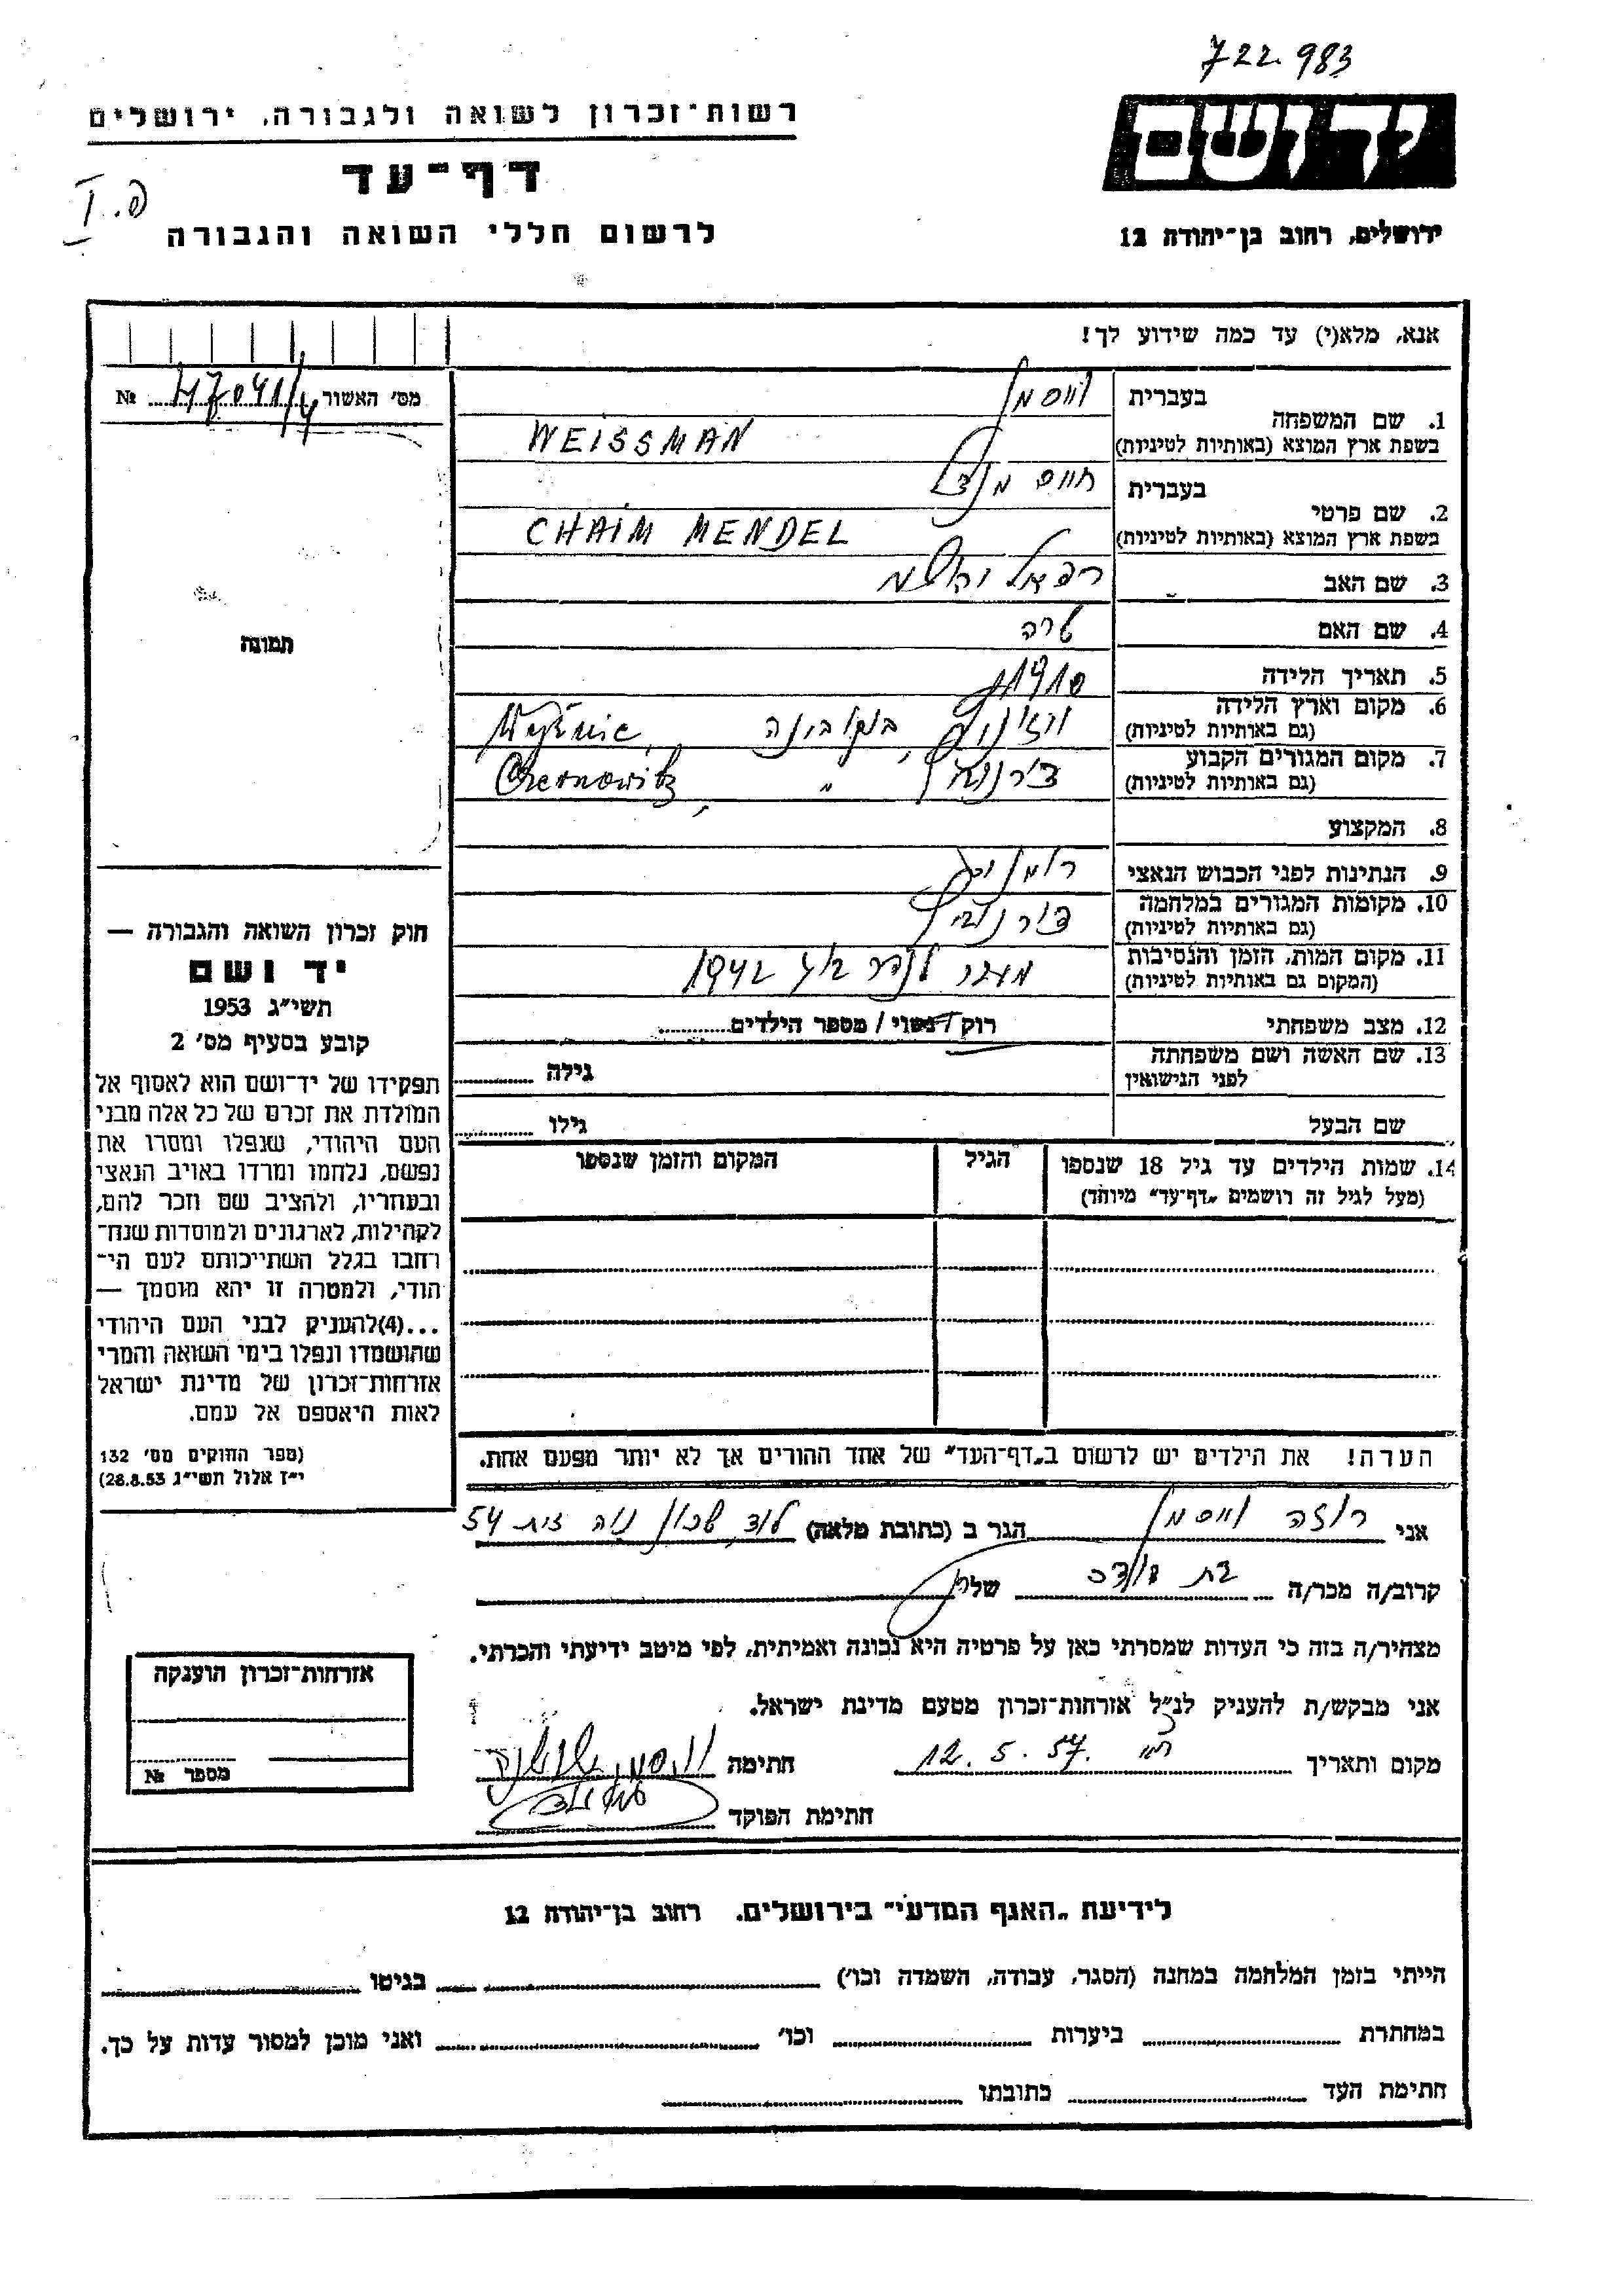 722.983
יד ושם
ירושלים, רחוב בן־יהודה 12
רשות־זכרון לשואה ולגבורה, ירושלים
דף־עד
לרשום חללי השואה והגבורה
אנא, מלא(י) עד כמה שידוע לך!
מס' האשור № 47041/4
1. שם המשפחה בעברית ווייסמן
בשפת ארץ המוצא (באותיות לטיניות) WEISSMAN
2. שם פרטי בעברית חיים מנדל
בשפת ארץ המוצא (באותיות לטיניות) CHAIM MENDEL
3. שם האב רפאל
4. שם האם שרה
5. תאריך הלידה 1910
6. מקום וארץ הלידה
(גם באותיות לטיניות) ויזניץ, בוקובינה
7. מקום המגורים הקבוע
(גם באותיות לטיניות) צ'רנוביץ " Chernowitz,
8. המקצוע
9. הנתינות לפני הכבוש הנאצי רומנית
10. מקומות המגורים במלחמה
(גם באותיות לטיניות) צ'רנוביץ
11. מקום המות, הזמן והנסיבות
(המקום גם באותיות לטיניות) מעבר לנהר בוג 1942
12. מצב משפחתי רוק/נשוי/ מספר הילדים
13. שם האשה ושם משפחתה
לפני הנישואין גילה
שם הבעל גילו
14. שמות הילדים עד גיל 18 שנספו הגיל המקום והזמן שנספו
(מעל לגיל זה רושמים „דף־עד" מיוחד)
הערה! את הילדים יש לרשום ב„דף־העד" של אחד ההורים אך לא יותר מפעם אחת.
תמונה
חוק זכרון השואה והגבורה —
יד ושם
תשי"ג 1953
קובע בסעיף מס' 2
תפקידו של יד־ושם הוא לאסוף אל
המולדת את זכרם של כל אלה מבני
העם היהודי, שנפלו ומסרו את
נפשם, נלחמו ומרדו באויב הנאצי
ובעוזריו, ולהציב שם וזכר להם,
לקהילות, לארגונים ולמוסדות שנח־
רבו בגלל השתייכותם לעם הי־
הודי, ולמטרה זו יהא מוסמך —
...(4)להעניק לבני העם היהודי
שהושמדו ונפלו בימי השואה והמרי
אזרחות־זכרון של מדינת ישראל
לאות היאספם אל עמם.
(ספר החוקים מס' 132
י"ז אלול תשי"ג 28.8.53)
אני רוזה ווייסמן הגר ב (כתובת מלאה) לוד, שכון נוה זית 54
קרוב/ה מכר/ה בת דודה של
מצהיר/ה בזה כי העדות שמסרתי כאן על פרטיה היא נכונה ואמיתית, לפי מיטב ידיעתי והכרתי.
אני מבקש/ת להעניק לנ"ל אזרחות־זכרון מטעם מדינת ישראל.
מקום ותאריך 12. 5. 57. חתימה
חתימת הפוקד
אזרחות־זכרון הוענקה
מספר №
לידיעת „האגף המדעי" בירושלים, רחוב בן־יהודה 12
הייתי בזמן המלחמה במחנה (הסגר, עבודה, השמדה וכו') בגיטו
במחתרת ביערות וכו' ואני מוכן למסור עדות על כך.
חתימת העד כתובתו